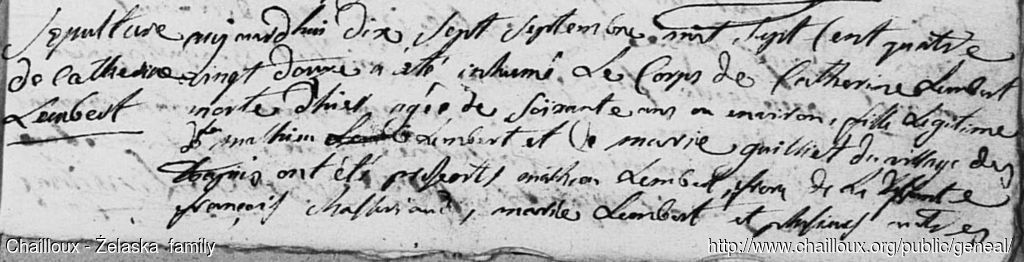 Sepulture
de Catherine
Lembert
aujourdhui dix sept septembre mil sept cent quatre
vingt douze a eté inhumé Le Corps de Catherine Lembert
morte d'hier agée de soixante ans ou environ, fille Legitime
mathieu Lembert et de marie guilliet du village des
ont été presents mathieu Lembert, frere de La defunte
françois, marie Lembert et plusieurs autres
Chailloux - Żelaska family
http://www.chailloux.org/public/geneal/